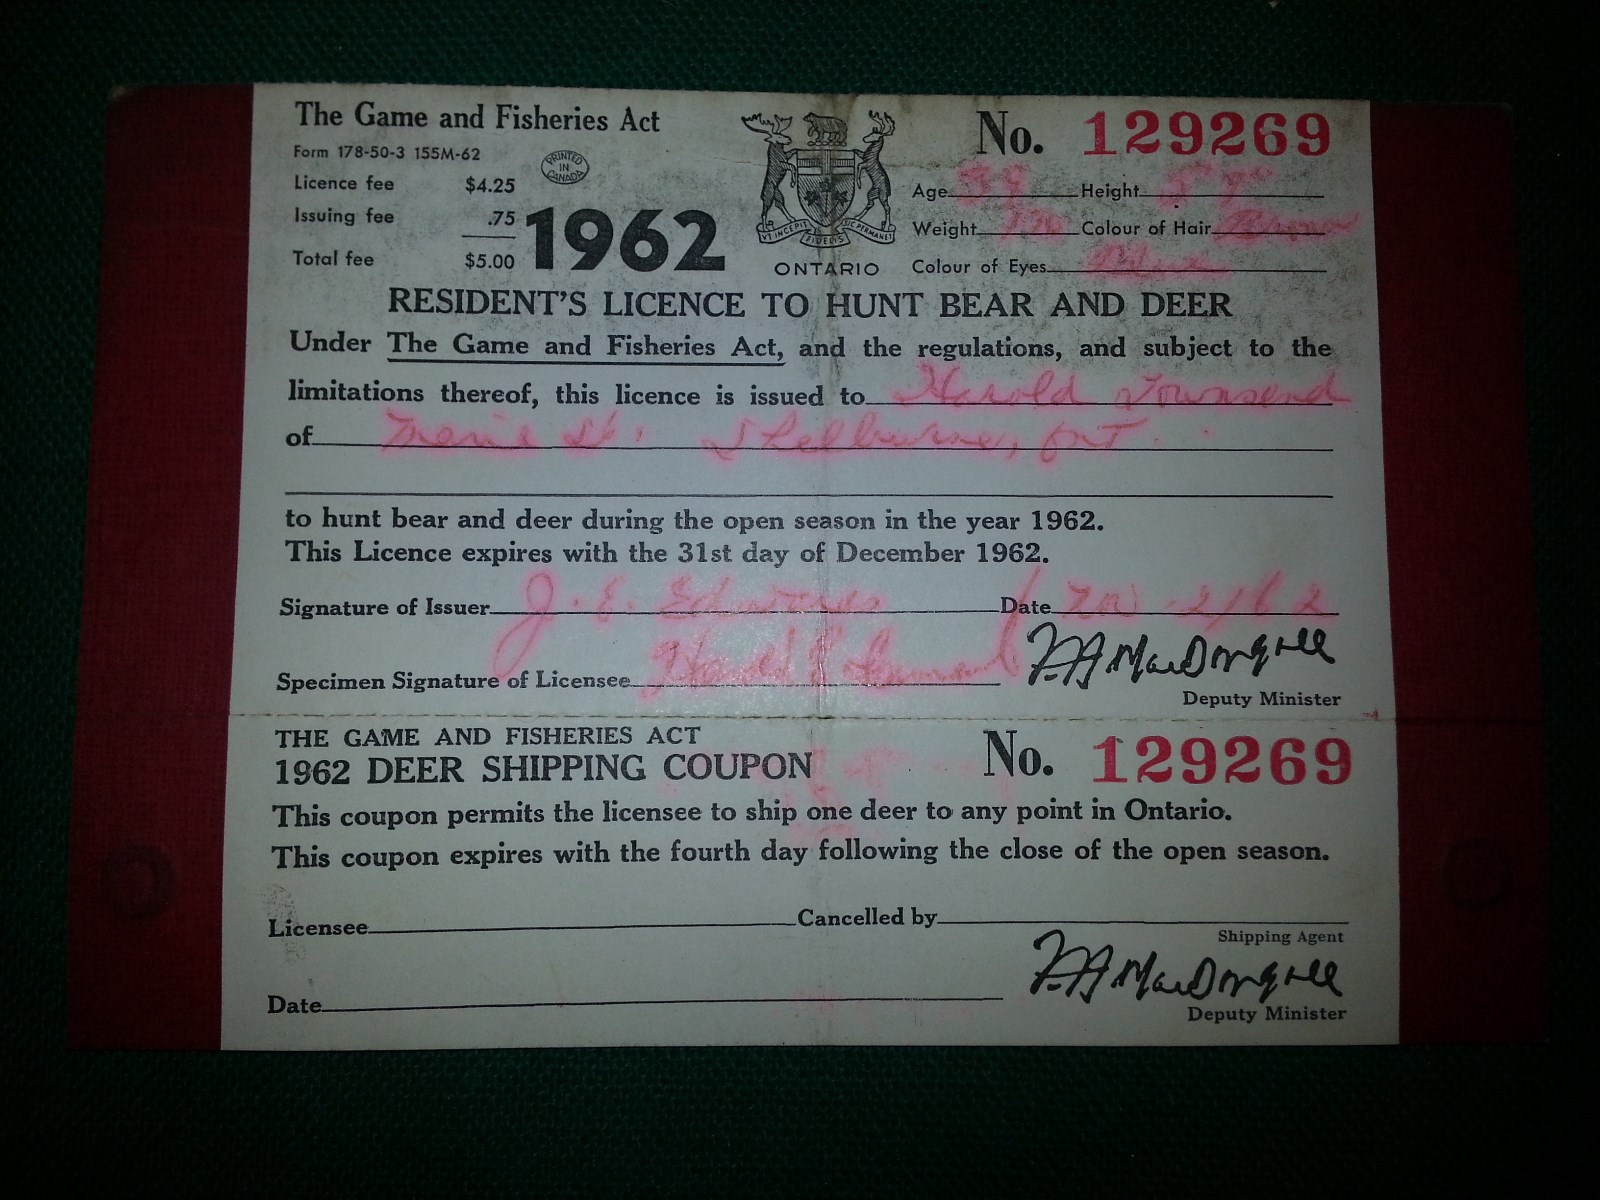 The Game and Fisheries Act
Form 178-50-3 155M-62
PRINTED IN CANADA
Licence fee $4.25
Issuing fee .75
Total fee $5.00
1962
VT INCEPIT FIDELIS SIC PERMANET
ONTARIO
No. 129269
Age 39 Height 5'
Weight Colour of Hair Brown
Colour of Eyes Blue
RESIDENT'S LICENCE TO HUNT BEAR AND DEER
Under The Game and Fisheries Act, and the regulations, and subject to the
limitations thereof, this licence is issued to Harold Townsend
of St. Shelburne, Ont.
to hunt bear and deer during the open season in the year 1962.
This Licence expires with the 31st day of December 1962.
Signature of Issuer J. E. Edwards Date Nov. 2/62
Specimen Signature of Licensee Harold
Deputy Minister
THE GAME AND FISHERIES ACT
1962 DEER SHIPPING COUPON No. 129269
This coupon permits the licensee to ship one deer to any point in Ontario.
This coupon expires with the fourth day following the close of the open season.
Licensee Cancelled by
Shipping Agent
Date
Deputy Minister